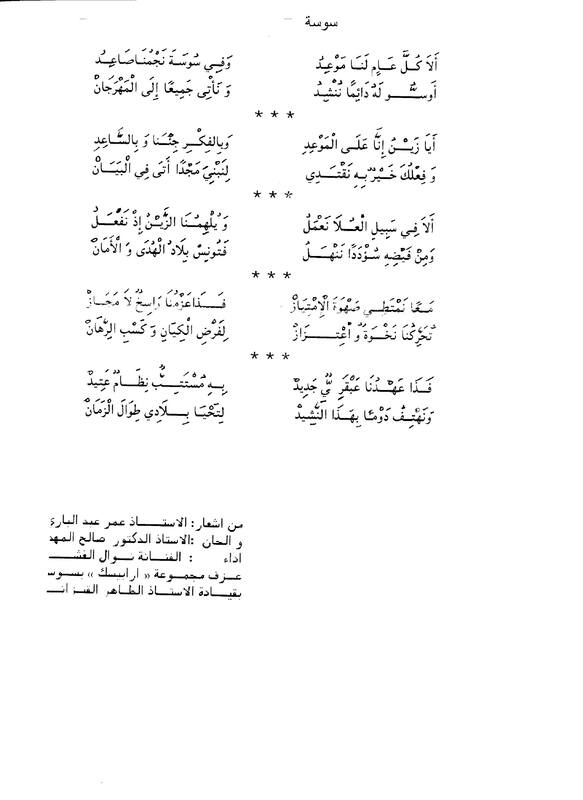 سوسة
أَلاَ كُلَّ عَامٍ لَنَا مَوْعِدُ وَفِي سُوسَةَ نَجْمُنَا صَاعِدُ
أوسُّو لَهُ دَائِمًا نُنْشِدُ وَ نَأْتِي جَمِيعًا إِلَى الْمَهْرَجَانْ
* * *
أَيَا زَيْنُ إِنَّا عَلَى الْمَوْعِدِ وَبِالفِكْرِ جِئْنَا وَ بِالسَّاعِدِ
وَ فِعْلُكَ خَيْرٌ بِهِ نَقْتَدِي لِنَبْنِيَ مَجْدًا أَتَى فِي الْبَيَانْ
* * *
أَلاَ فِي سَبِيلِ الْعُلاَ نَعْمَلُ وَ يُلْهِمُنَا الزَّيْنُ إِذْ نَفْعَلُ
وَمِنْ فَيْضِهِ سُؤْدَدًا نَنْهَلُ فَتُونِسُ بِلاَدُ الْهُدَى وَ الْأَمَانْ
* * *
مَعًا نَمْتَطِي صَهْوَةَ الْإِمْتِيَازْ فَذَا عَزْمُنَا رَاسِخٌ لاَ مَجَازْ
تُحَرِّكُنَا نَخْوَةٌ وَ اعْتِزَازْ لِفَرْضِ الْكِيَانِ وَ كَسْبِ الرِّهَانْ
* * *
فَذَا عَهْدُنَا عَبْقَرِيٌّ جَدِيدْ بِهِ مُسْتَتِبٌّ نِظَامٌ عَتِيدْ
وَنَهْتِفُ دَوْمًا بِهَذَا النَّشِيدْ لِتَحْيَا بِلاَدِي طِوَالَ الزَّمَانْ
من اشعار : الاستاذ عمر عبد الباري
و الحان : الاستاذ الدكتور صالح
اداء : الفنانة نوال
عزف مجموعة « ارابيسك »
بقيادة الاستاذ الطاهر